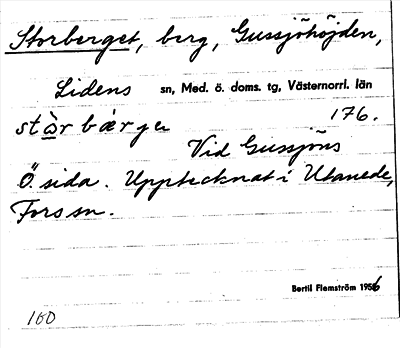 Storberget, berg, Gussjöhöjden,
Lidens sn, Med. ö. doms. tg, Västernorrl. län
stòrbærje 176.
Vid Gussjöns
Ö. sida. Upptecknat i Utanede,
Fors sn.
Bertil Flemström 1956
160